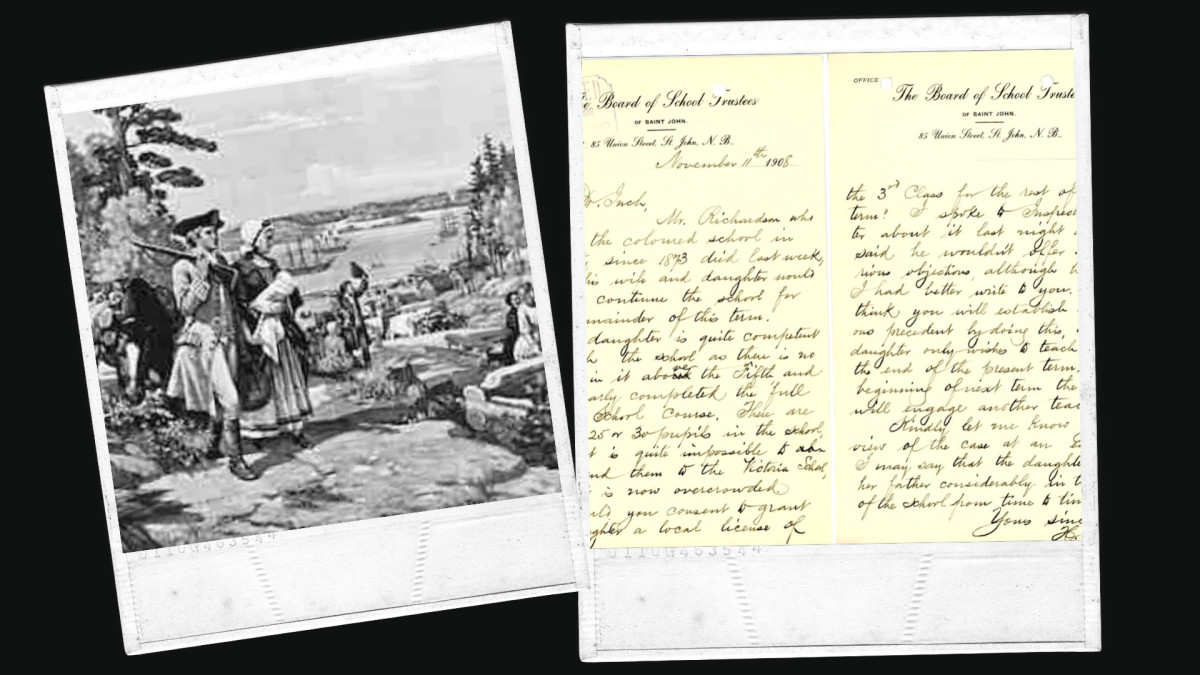 Board of School Trustees
OF SAINT JOHN.
85 Union Street, St. John, N. B.
November 11th 1908
Dr. Inch,
Mr. Richardson who
the coloured school in
since 1873 died last week,
his wife and daughter would
continue the school for
mainder of this term.
daughter is quite competent
the school as there is no
in it above the Fifth and
arly completed the full
School Course. There are
25 or 30 pupils in the school,
it is quite impossible to
nd them to the Victoria School,
is now overcrowded.
you consent to grant
ghter a local license of
OFFICE
The Board of School Truste
OF SAINT JOHN.
85 Union Street, St. John, N. B.
the 3rd Class for the rest of
term? I spoke to Inspec
ter about it last night
said he wouldn't offer
rious objections although
I had better write to you.
think you will establish
ous precedent by doing this,
daughter only wishes to teach
the end of the present term.
beginning of next term the
will engage another teac
Kindly let me know
view of the case at an
I may say that the daughte
her father considerably in t
of the school from time to tim
Yours sinc